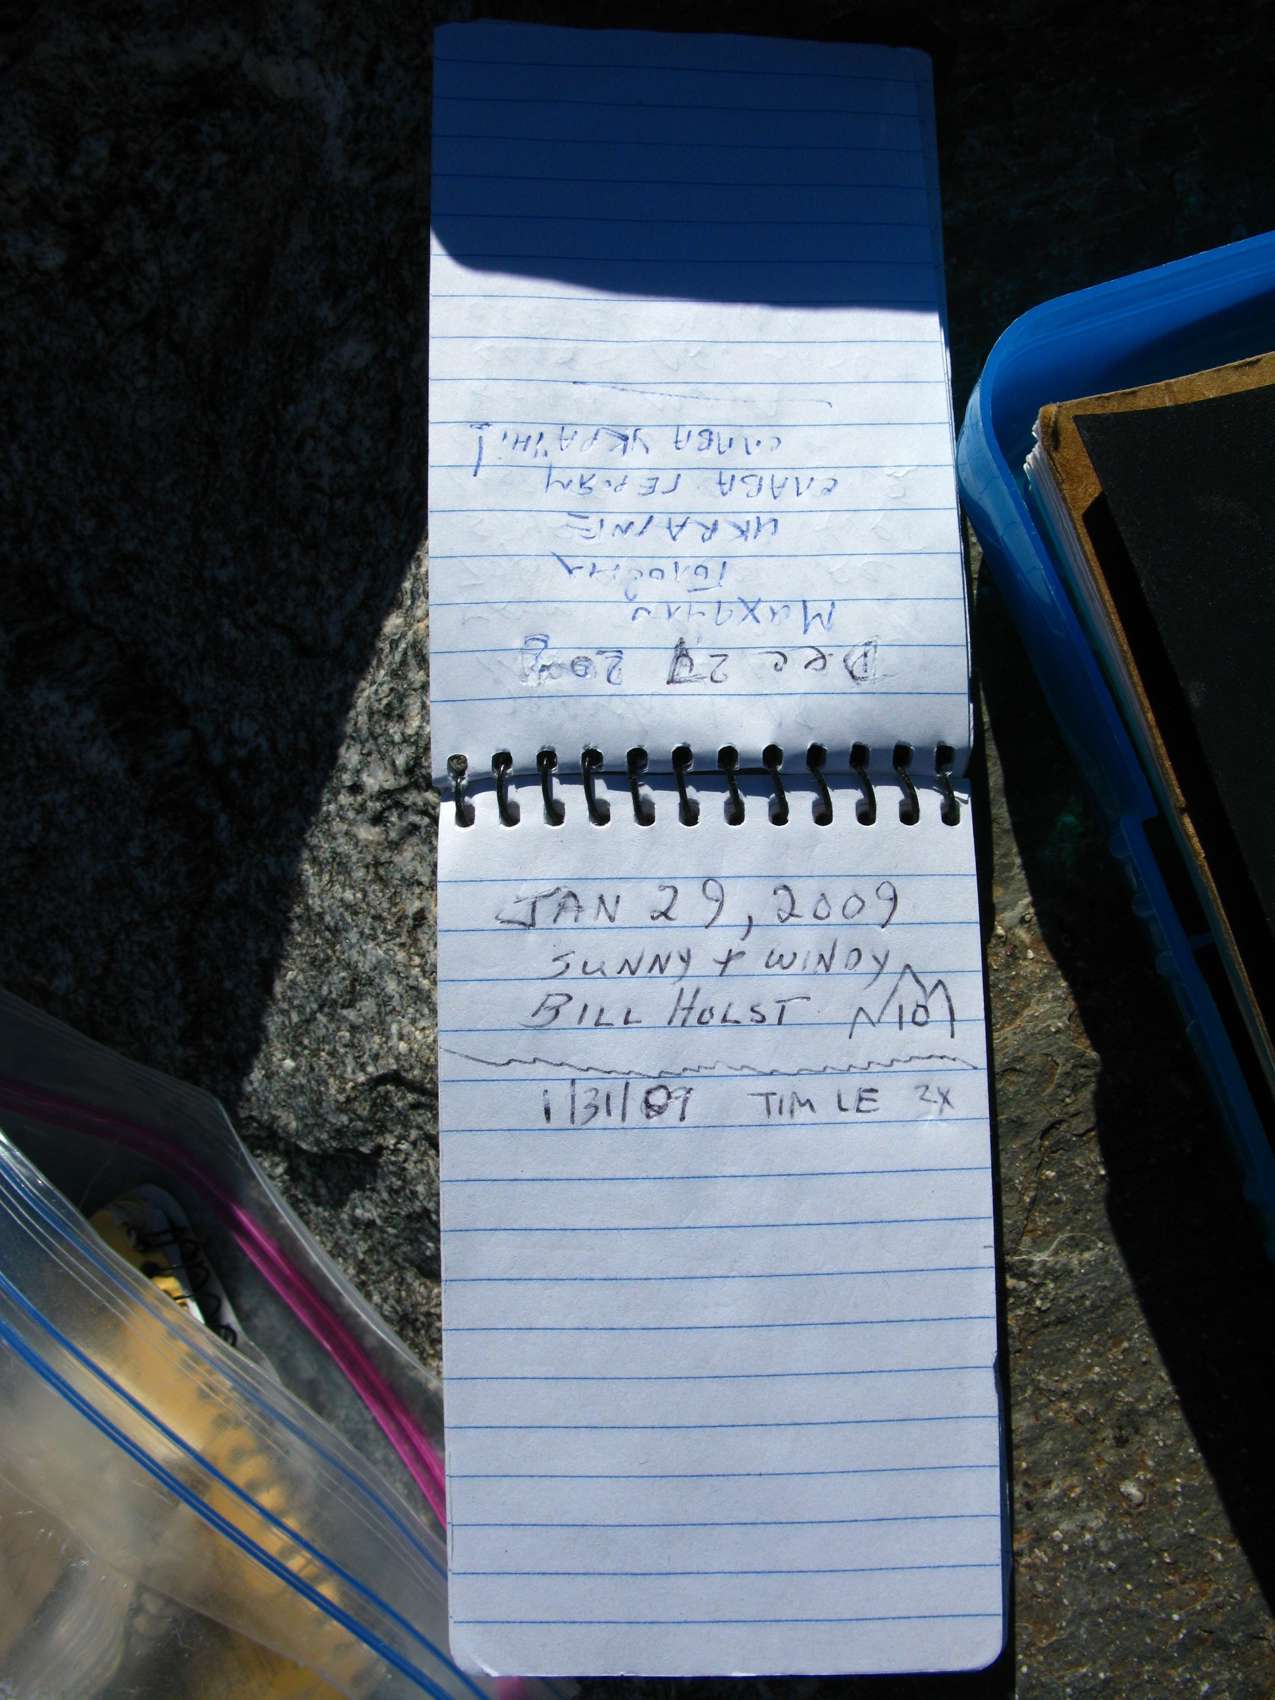 Dec 27 2008
UKRAINE
СЛАВА ГЕРОЯМ
СЛАВА УКРАЇНІ!
JAN 29, 2009
SUNNY + WINDY
BILL HOLST
1/31/09 TIM LE 2X